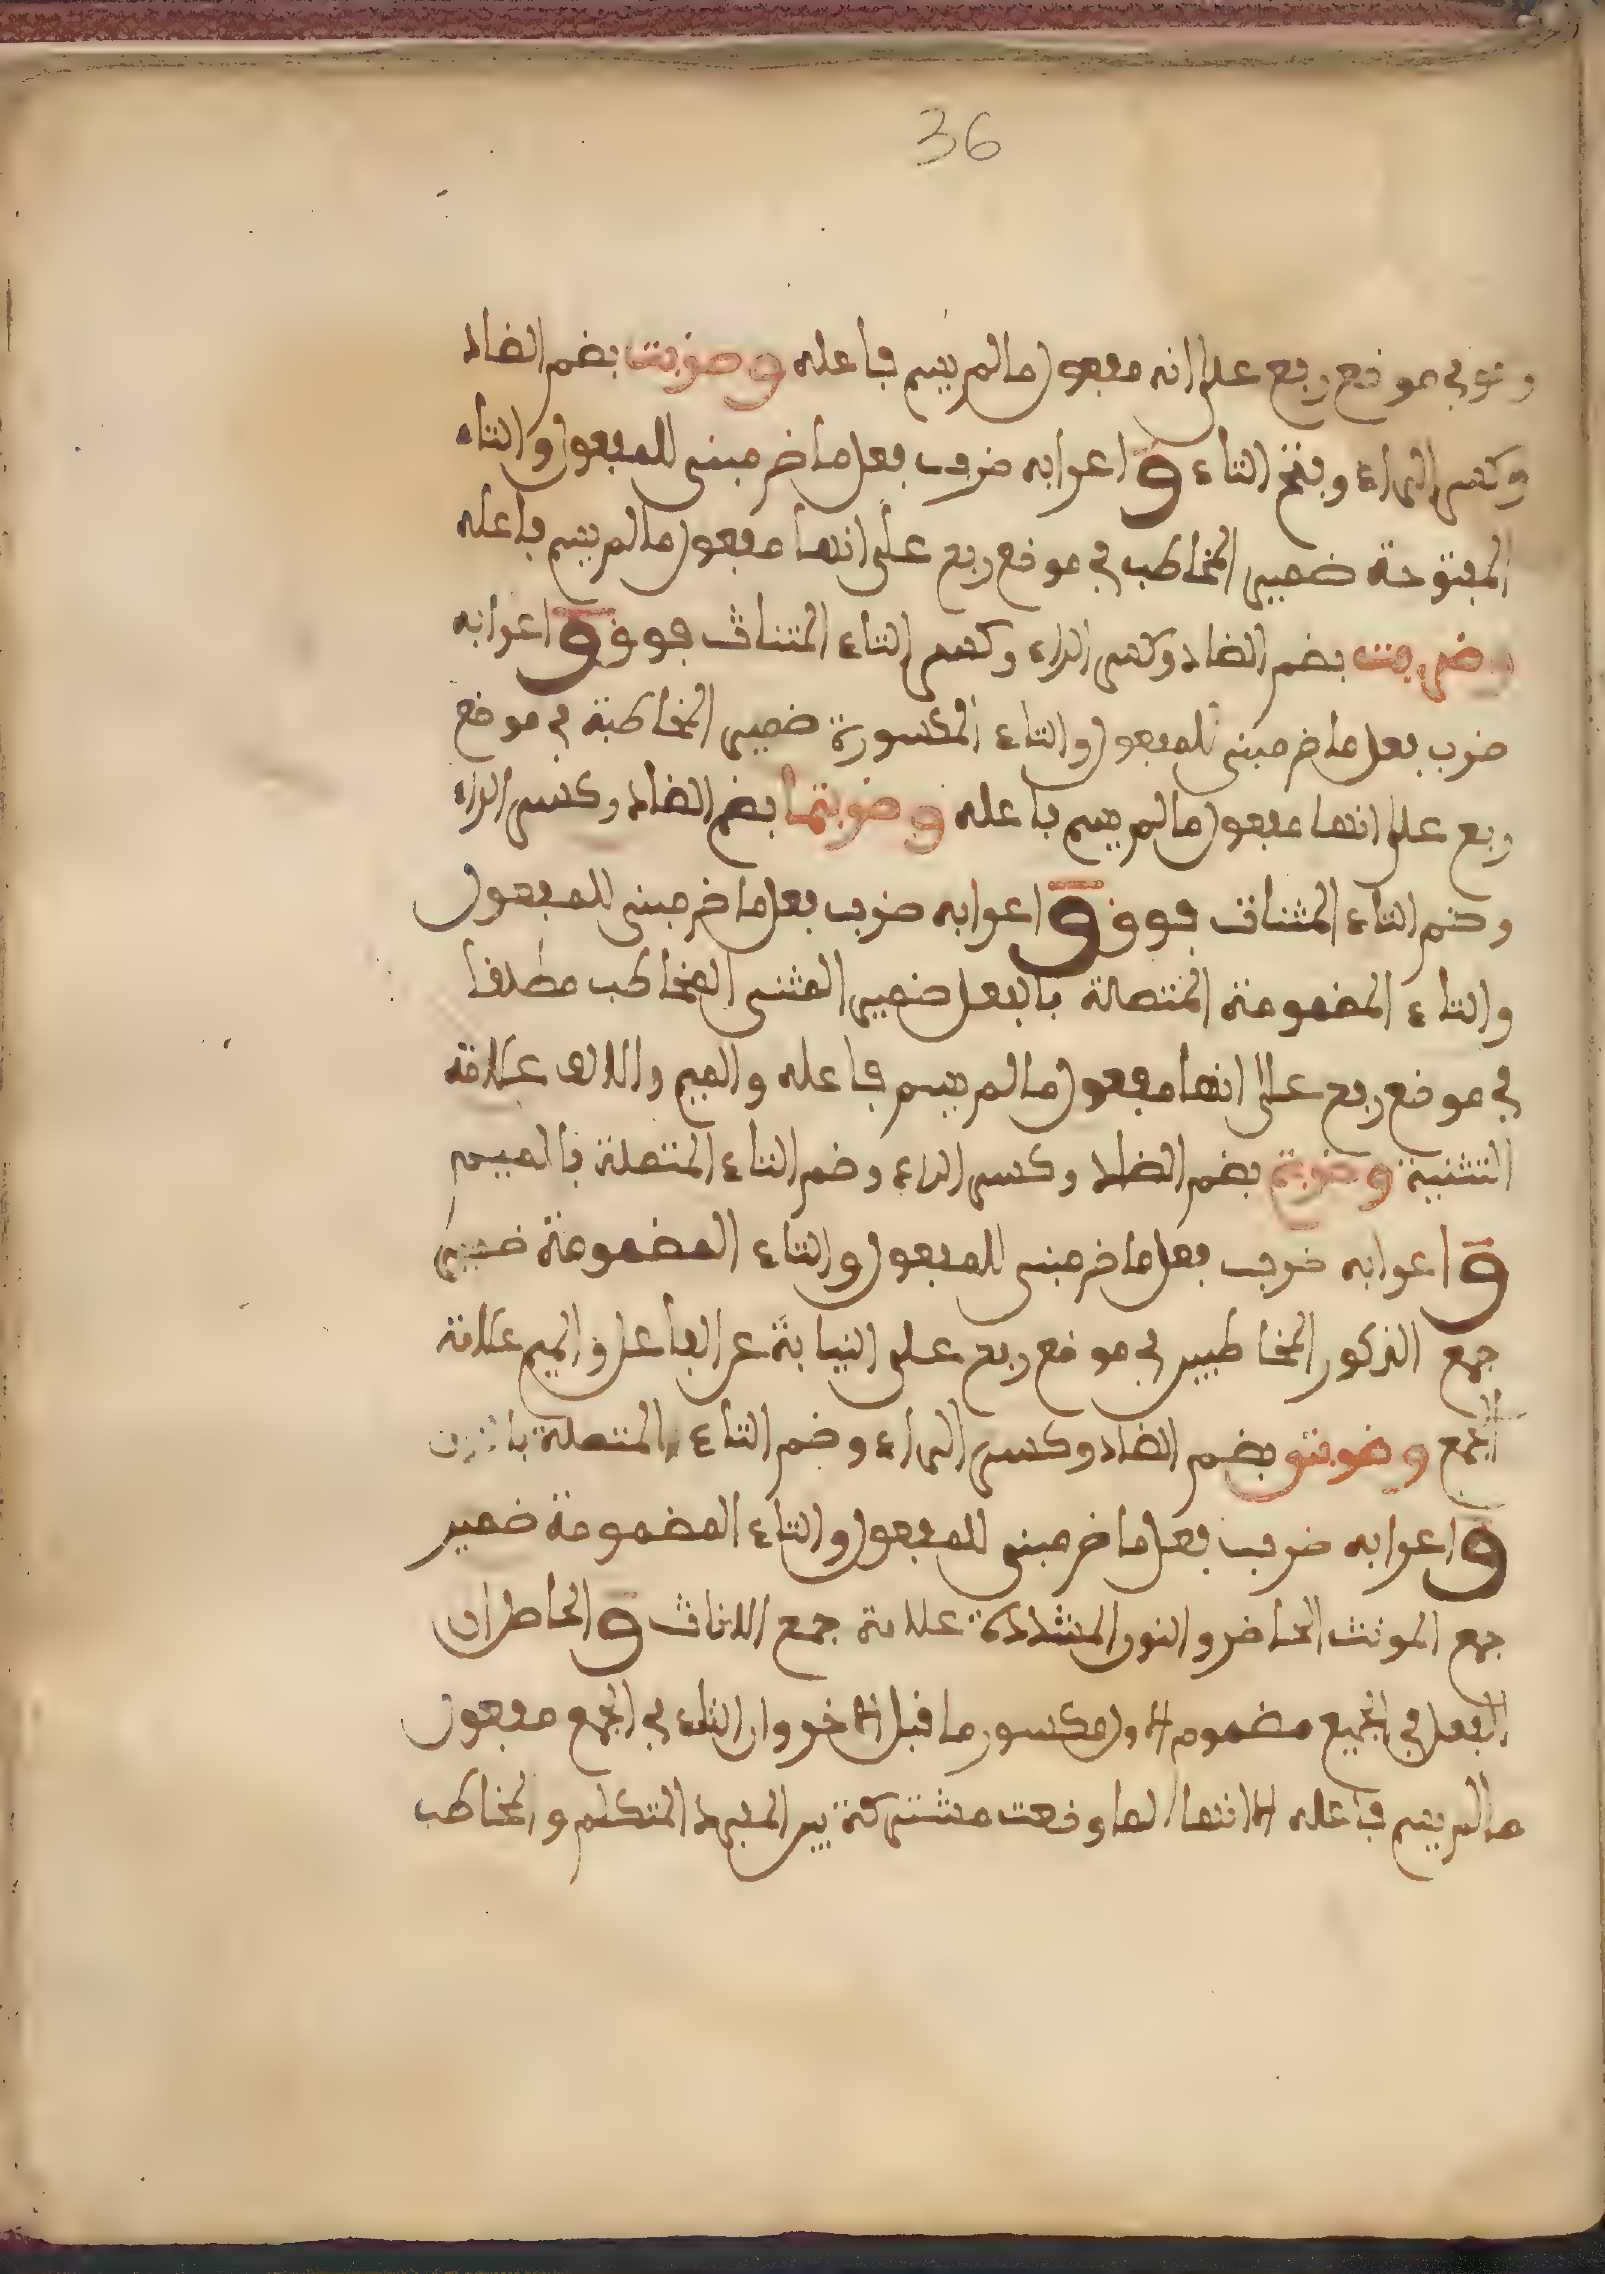 36
وهو في موضع رفع على انه مفعول ما لم يسم فاعله وضربت بضم الضاد
وكسر الراء وفتح التاء و اعرابه ضرب فعل ماض مبني للمفعول والتاء
المفتوحة ضمير المخاطب في موضع رفع على انها مفعول ما لم يسم فاعله
وضربت بضم الضاد وكسر الراء وكسر التاء المتنات فوق و اعرابه
ضرب فعل ماض مبني للمفعول والتاء المكسورة ضمير المخاطبة في موضع
رفع على انها مفعول ما لم يسم فاعله وضربتما بضم الضاد وكسر الراء
وضم التاء المثنات فوق و اعرابه ضرب فعل ماض مبني للمفعول
والتاء المضمومة المتصالة بالفعل ضمير المثنى المخاطب مطلقا
في موضع رفع على انها مفعول ما لم يسم فاعله والميم والالف علامة
التثنية وضربتم بضم الضاد وكسر الراء وضم التاء المتصلة بالميم
و اعرابه ضرب فعل ماض مبني للمفعول والتاء المضمومة ضمير
جمع الذكور المخاطبين في موضع رفع على النيابة عن الفاعل والميم علامة
الجمع وضربتن بضم الضاد وكسر الراء وضم التاء المتصلة بالنون
و اعرابه ضرب فعل ماض مبني للمفعول والتاء المضمومة ضمير
جمع المونث الحاضر والنون المشددة علامة جمع الاناث و الحاطران
الفعل في الجميع مضموم الاول مكسور ما قبل الاخر وان التاء في الجمع مفعول
ما لم يسم فاعله الا انها لما وقعت مشتركة بين المفرد المتكلم والمخاطب